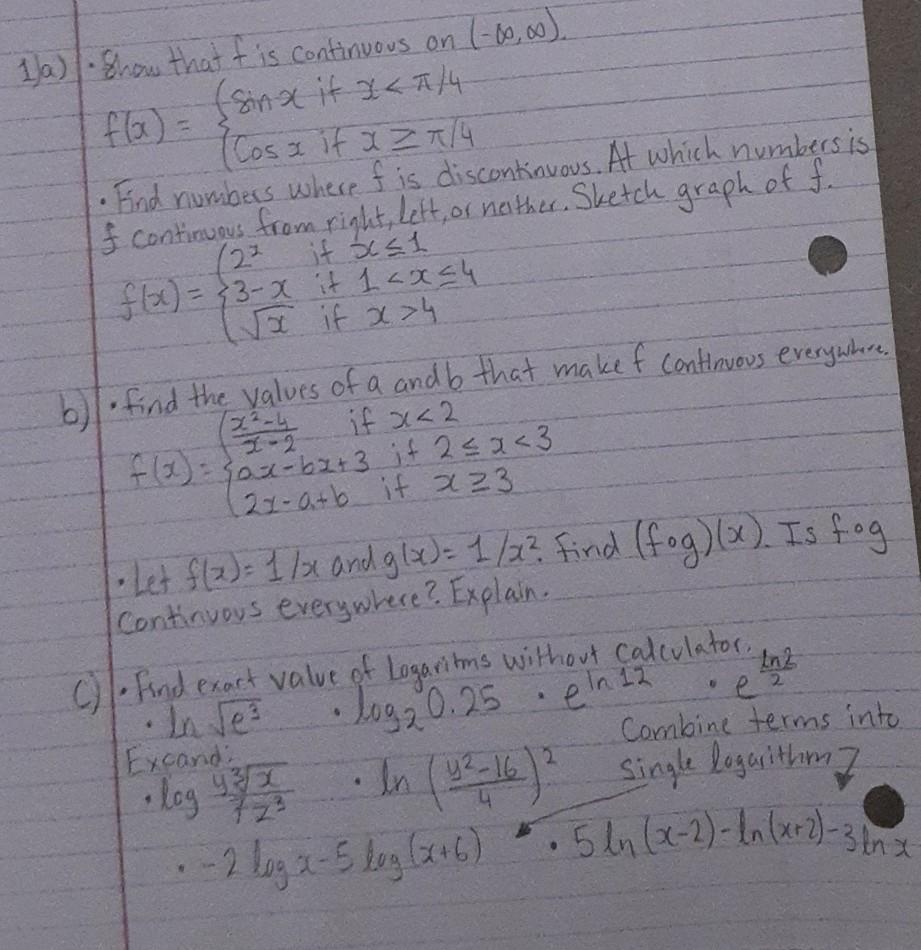 1)a) • Show that f is continuous on (-∞,∞).
f(x) = { sin x if x < π/4
Cos x if x ≥ π/4
• Find numbers where f is discontinuous. At which numbers is
f continuous from right, left, or neither. Sketch graph of f.
f(x) = { 2ˣ if x ≤ 1
3-x if 1 < x ≤ 4
√x if x > 4
b) • find the values of a and b that make f continuous everywhere.
f(x) = { (x²-4)/(x-2) if x < 2
ax-bx+3 if 2 ≤ x < 3
2x-a+b if x ≥ 3
• Let f(x) = 1/x and g(x) = 1/x². Find (fog)(x). Is fog
Continuous everywhere? Explain.
c) • Find exact value of Logaritms without calculator.
• ln √e³ • log₂ 0.25 • e^(ln 12) • e^(ln2/2)
Expand:
• log (y ∛x)/(7z³) • ln ((y²-16)/4)²
Combine terms into
single logarithm
• -2 log x - 5 log (x+6) • 5 ln (x-2) - ln (x+2) - 3 ln x